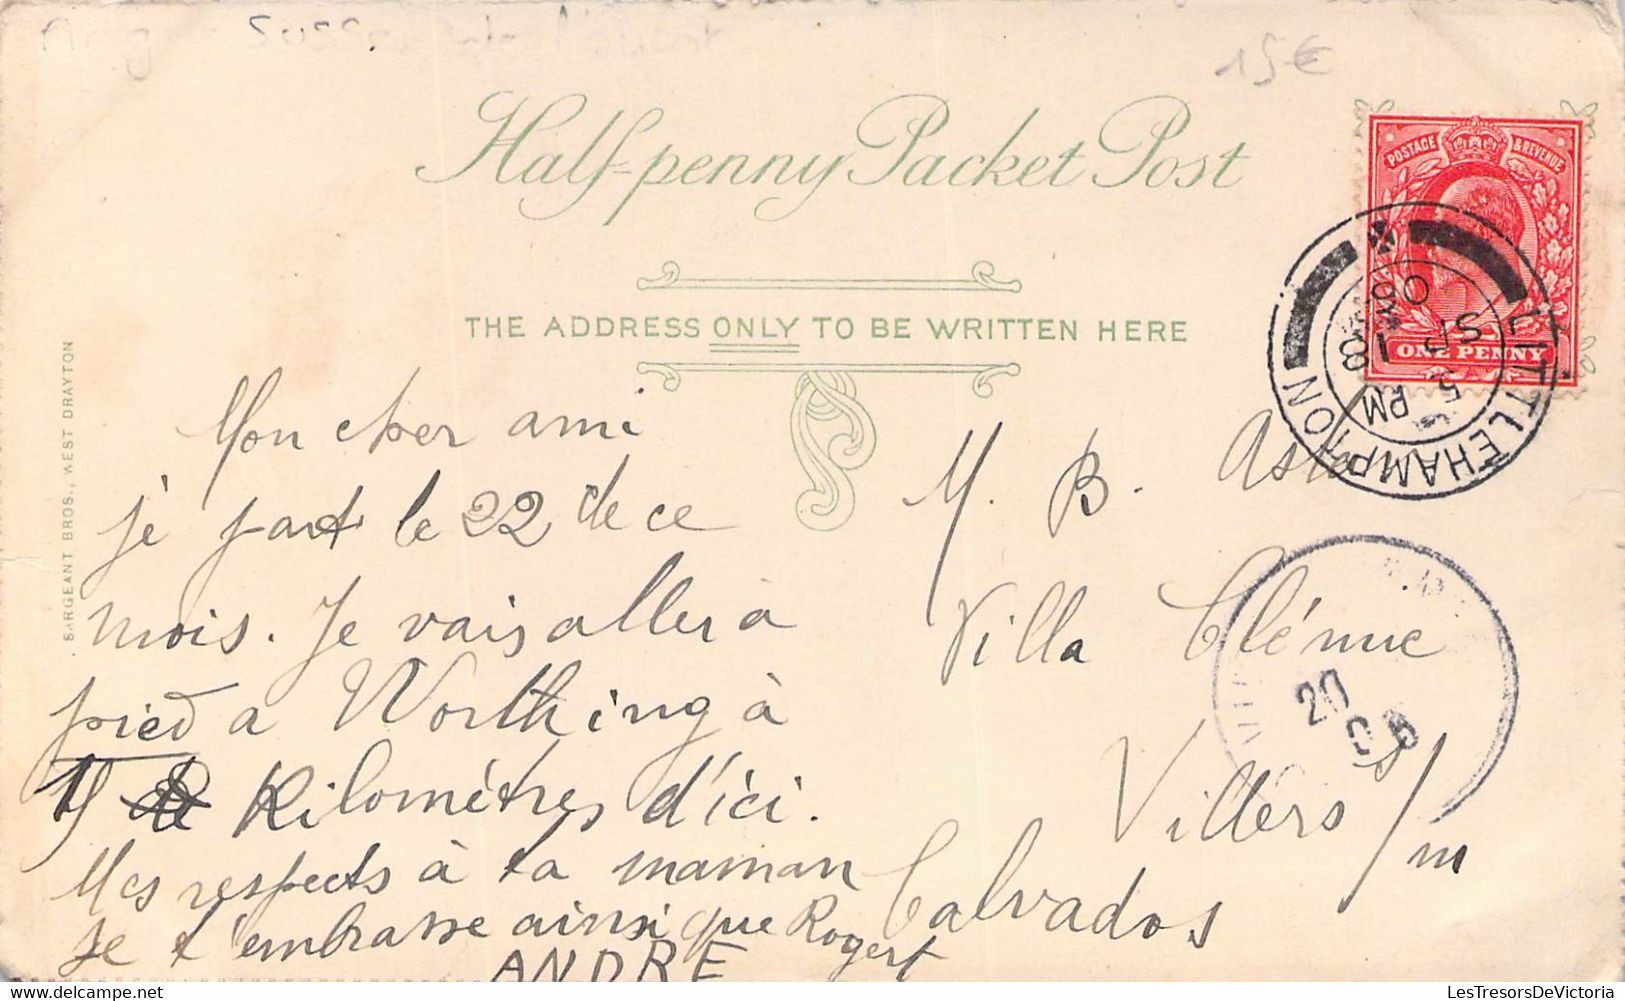 15€
Half-penny Packet Post
POSTAGE & REVENUE
ONE PENNY
LITTLEHAMPTON
PM
SP 18
THE ADDRESS ONLY TO BE WRITTEN HERE
SARGEANT BROS., WEST DRAYTON
Mon cher ami
je part le 22 de ce
mois. Je vais aller à
pied a Worthing à
Kilomètres d'ici.
Mes respects à ta maman
Je t'embrasse ainsi que Rogert
ANDRE
M. B.
Villa
Villers s/m
Calvados
20
LesTresorsDeVictoria